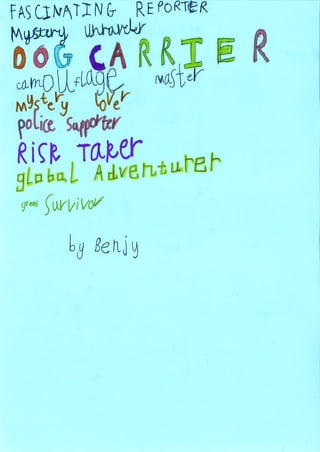 FASCINATING REPORTER
Mystery unraveler
DOG CARRIER
camouflage master
mystery lover
police supporter
RISK TAKER
global Adventurer
great Survivor
by Benjy